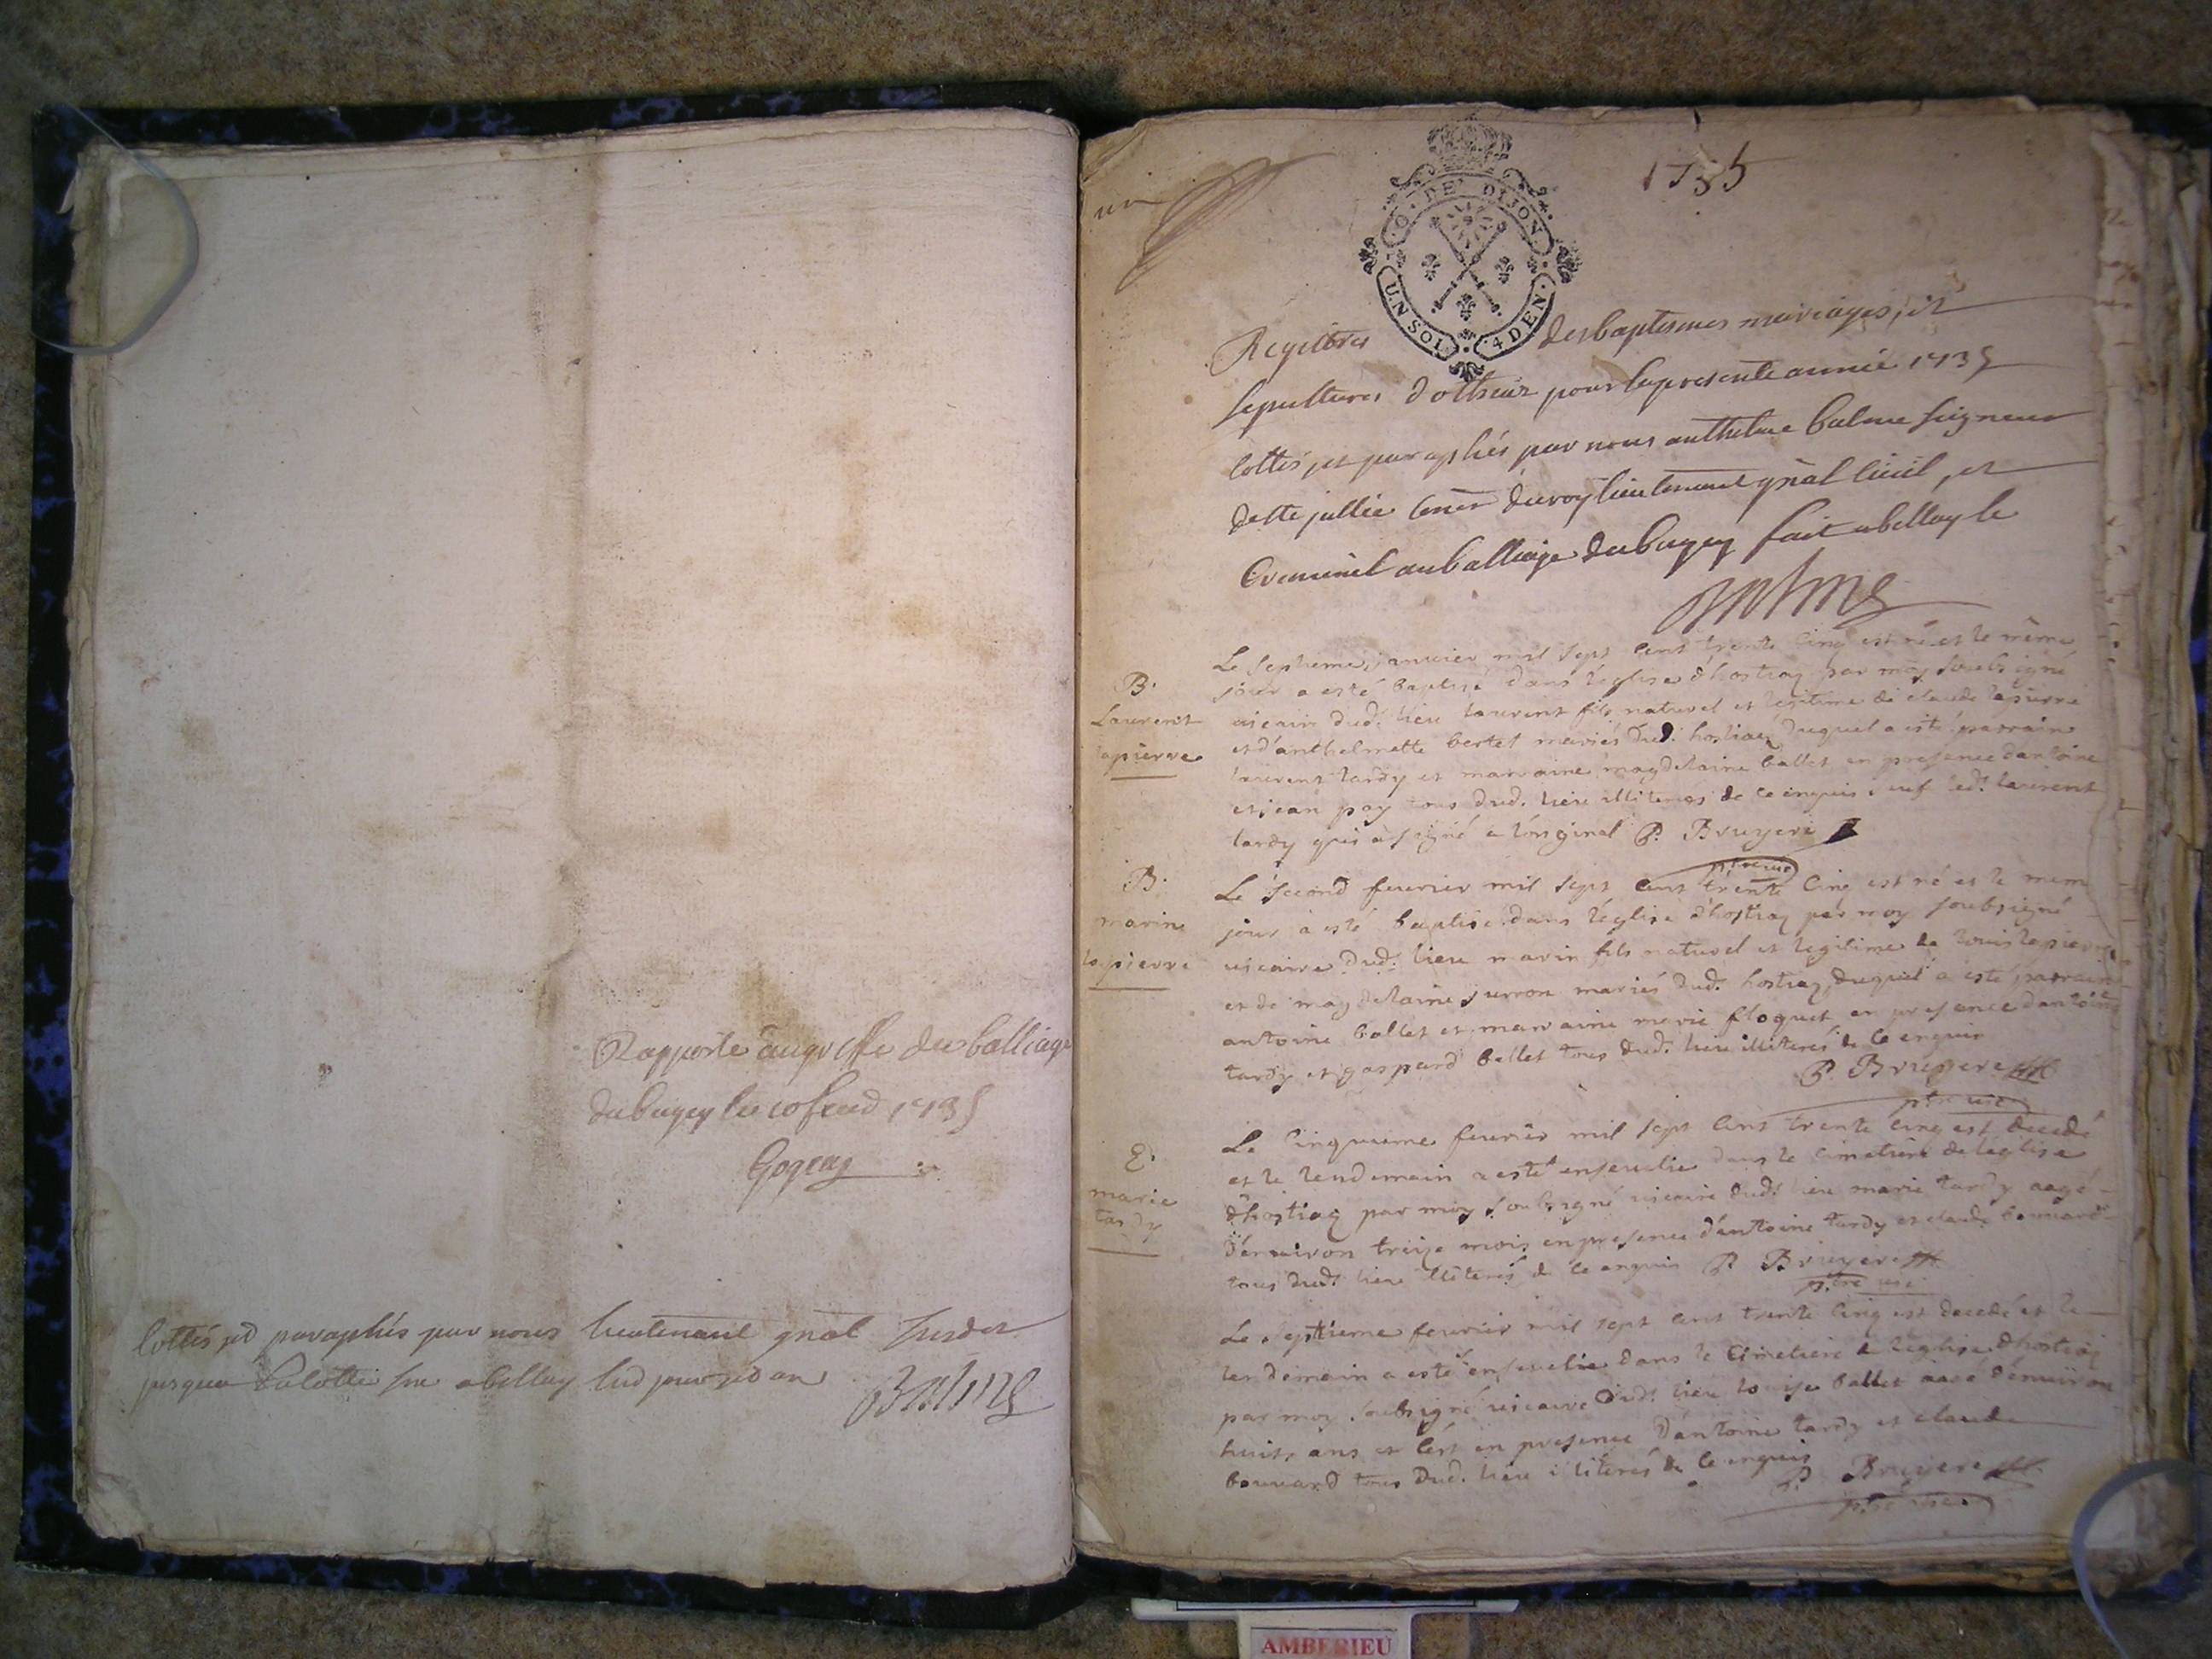 Rapporté au greffe du balliage
du bugey le 1735
lottés et paraphés par nous lieutenant gnal
jusqua a belley led jour et an
Balme
un
1735
O · DE DIJON
UN SOL · 4 DEN ·
Regittres des baptemes mariages, et
sepultures d'othiaz pour la presente année 1735
cottés et paraphés par nous anthelme balme seigneur
de Ste jullie du roy lieutenant gnàl civil, et
Criminel au balliage du bugey fait a belley le
Balme
B.
Laurent
lapierre
Le septieme janvier mil sept cent trente cinq est né et le même
jour a esté baptisé dans l'église d'hostiaz par moy soubsigné
vicaire dud. lieu laurent fils naturel et legitime de claude lapierre
et d'anthelmette bertet mariés dud. hostiaz duquel a esté parrain
laurent tardy et marraine magdelaine ballet en presence dantoine
et jean pay tous dud. lieu illiterés de ce enquis sauf led. laurent
tardy qui a signé a l'original P. Bruyere
ptre vic
B.
marin
lapierre
Le second feurier mil sept cent trente cinq est né et le mem
jour a esté baptisé dans l'église d'hostiaz par moy soubsigné
vicaire dud. lieu marin fils naturel et legitime de louis lapierre
et de magdelaine juron mariés dud. hostiaz, duquel a esté parrain
antoine ballet et marraine marie floquet en presence dantoine
tardy et gaspard ballet tous dud. lieu illiterés de ce enquis
P. Bruyere
ptre vic
E.
marie
tardy
Le Cinquieme feurier mil sept cent trente cinq est decedé
et le lendemain a esté enseuelie dans le cimetiere de l'église
d'hostiaz par moy soubsigné vicaire dud. lieu marie tardy aagé
d'enuiron treize mois en presence d'antoine tardy et claude bouuard
tous dud. lieu illiterés de ce enquis P. Bruyere
ptre vic
Le septieme feurier mil sept cent trente cinq est decedé et le
lendemain a esté enseuelie dans le Cimetiere de l'église d'hostiaz
par moy soubsigné vicaire dud. lieu louise ballet aagé d'enuiron
huit ans et c'est en presence d'antoine tardy et claude
bouuard tous dud. lieu illiterés de ce enquis
P. Bruyere
ptre vic
AMBERIEU